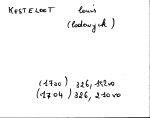 KESTELOOT louis
(lodewyck)
(1700) 326, 112vo
(1704) 326, 210vo